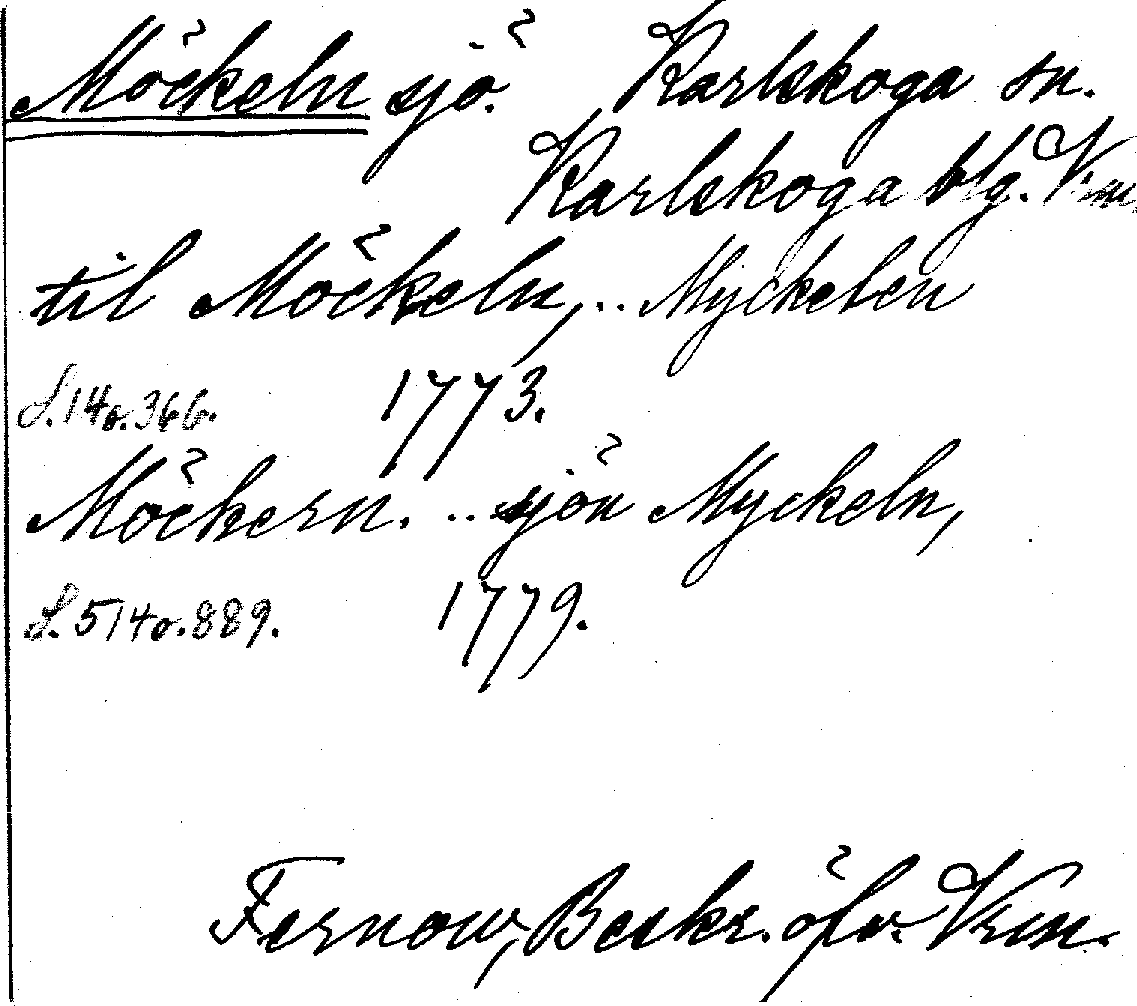 Möckeln sjö. Karlskoga sn.
Karlskoga blg. Vrm.
til Möckeln, .. Myckelen
S. 14 o. 366. 1773.
Möckern. .. sjön Myckeln,
S. 514 o. 889. 1779.
Fernow, Beskr. öfv. Vrm.